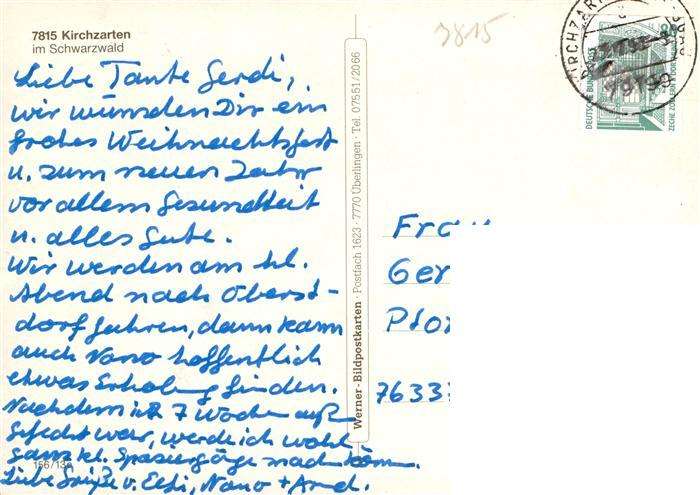 7815 Kirchzarten
im Schwarzwald
Liebe Tante Gerdi,
wir wünschen Dir ein
frohes Weihnachtsfest
u. zum neuen Jahr
vor allem Gesundheit
u. alles Gute.
Wir werden am hl.
Abend nach Oberst-
dorf fahren, dann kann
auch Nano hoffentlich
etwas Erholung finden.
Nachdem ich 7 Wochen außer
Gefecht war, werde ich wohl
ganz kl. Spaziergänge machen können.
Liebe Grüße v. Elfi, Nano + Arnd.
156/13
Werner-Bildpostkarten · Postfach 1623 · 7770 Überlingen · Tel. 07551/2066
7815
KIRCHZARTEN
79199
DEUTSCHE BUNDESPOST
ZECHE ZOLLERN II DORTMUND
Frau
Ger
Plo
7633